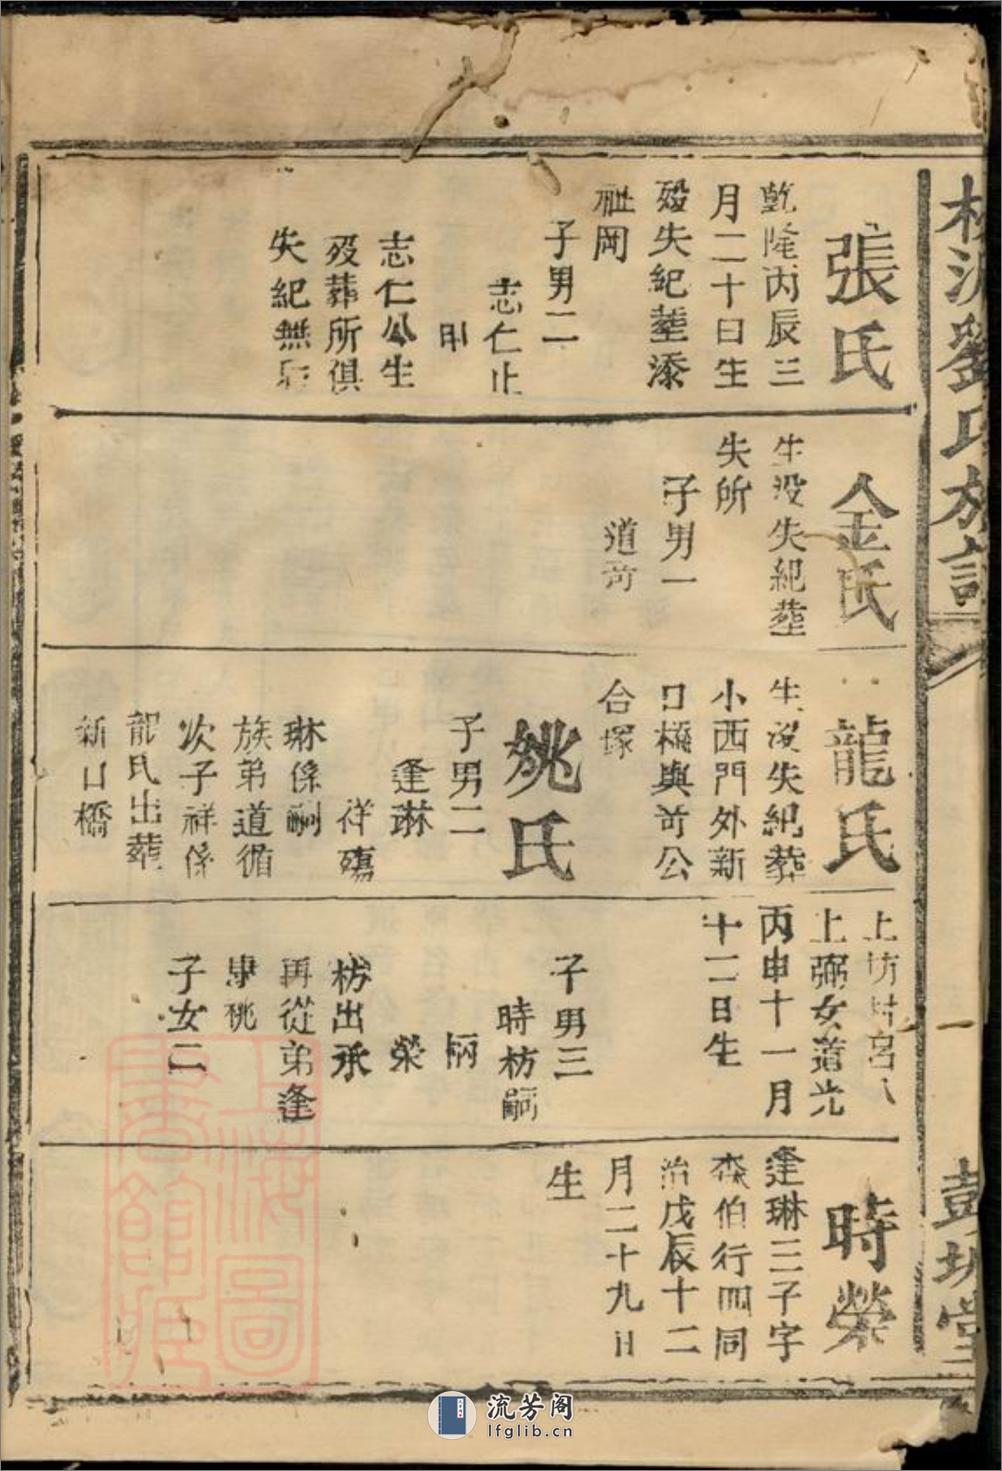 劉氏族譜
張氏
乾隆丙辰三
月二十日生
歿失紀塟漆
祉岡
子男二
志仁止
明
志仁公生
歿葬所俱
失紀無后
金氏
生歿失紀塟
失所
子男一
道苛
龍氏
生沒失紀葬
小西門外新
口橋與苛公
合塚
姚氏
子男二
逢琳
祥殤
琳係嗣
族弟道循
次子祥係
龍氏出葬
新口橋
上弼女道光
丙申十一月
十二日生
子男三
時枋嗣
柄
榮
枋出承
再從弟逢
康祧
子女二
時榮
逢琳三子字
森伯行四同
治戊辰十二
月二十九日
生
上海圖
書館藏
流芳阁
lfglib.cn